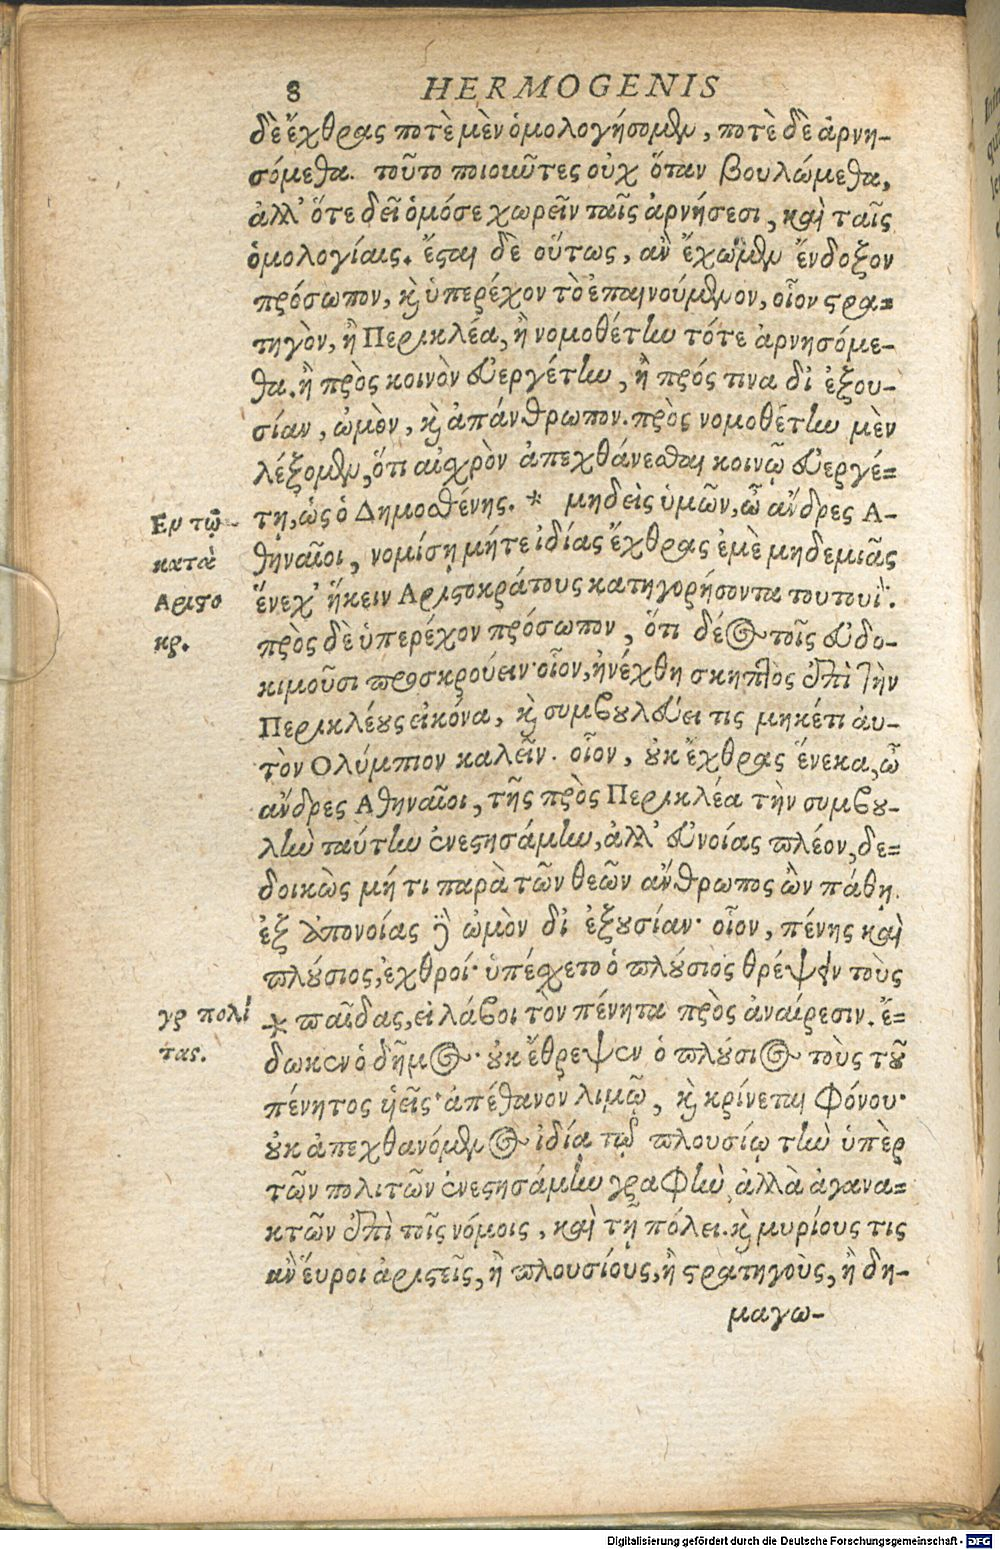 8 HERMOGENIS
δὲ ἔχθρας ποτὲ μὲν ὁμολογήσομεν, ποτὲ δὲ ἀρνη-
σόμεθα. τοῦτο ποιοιῶτες οὐχ ὅταν βουλώμεθα,
ἀλλ' ὅτε δεῖ ὁμόσε χωρεῖν ταῖς ἀρνήσεσι, καὶ ταῖς
ὁμολογίαις. ἔσται δὲ οὕτως, ἂν ἔχωμεν ἔνδοξον
πρόσωπον, καὶ ὑπερέχον τὸ ἐπαινούμενον, οἷον στρα-
τηγὸν, ἢ Περικλέα, ἢ νομοθέτην τότε ἀρνησόμε-
θα. ἢ πρὸς κοινὸν εὐεργέτην, ἢ πρός τινα δι' ἐξου-
σίαν, ὠμὸν, καὶ ἀπάνθρωπον. πρὸς νομοθέτην μὲν
λέξομεν, ὅτι αἰσχρὸν ἀπεχθάνεσθαι κοινῷ εὐεργέ-
τῃ, ὡς ὁ Δημοσθένης. * μηδεὶς ὑμῶν, ὦ ἄνδρες Α-
θηναῖοι, νομίσῃ μήτε ἰδίας ἔχθρας ἐμὲ μηδεμιᾶς
ἕνεχ' ἥκειν Αριστοκράτους κατηγορήσοντα τουτουΐ.
Εν τῷ
κατὰ
Αριστο
κρ.
πρὸς δὲ ὑπερέχον πρόσωπον, ὅτι δέος τοῖς εὐδο-
κιμοῦσι προσκρούειν· οἷον, ἠνέχθη σκηπτὸς ἐπὶ τὴν
Περικλέους εἰκόνα, καὶ συμβουλεύει τις μηκέτι αὐ-
τὸν Ολύμπιον καλεῖν. οἷον, οὐκ ἔχθρας ἕνεκα, ὦ
ἄνδρες Αθηναῖοι, τῆς πρὸς Περικλέα τὴν συμβου-
λὴν ταύτην ἐνεστησάμην, ἀλλ' εὐνοίας πλέον, δε-
δοικὼς μή τι παρὰ τῶν θεῶν ἄνθρωπος ὢν πάθῃ.
ἐξ ἀπονοίας δὲ ὠμὸν δι' ἐξουσίαν· οἷον, πένης καὶ
πλούσιος, ἐχθροί· ὑπέσχετο ὁ πλούσιος θρέψειν τοὺς
* παῖδας, εἰ λάβοι τὸν πένητα πρὸς ἀναίρεσιν. ἔ-
γρ πολί
τας.
δωκεν ὁ δῆμος· οὐκ ἔθρεψεν ὁ πλούσιος τοὺς τοῦ
πένητος ὑεῖς· ἀπέθανον λιμῷ, καὶ κρίνεται φόνου·
οὐκ ἀπεχθανόμενος ἰδίᾳ τῷ πλουσίῳ τὴν ὑπὲρ
τῶν πολιτῶν ἐνεστησάμην γραφὴν, ἀλλὰ ἀγανα-
κτῶν ἐπὶ τοῖς νόμοις, καὶ τῇ πόλει. καὶ μυρίους τις
ἂν εὕροι ἀριστεῖς, ἢ πλουσίους, ἢ στρατηγοὺς, ἢ δη-
μαγω-
Digitalisierung gefördert durch die Deutsche Forschungsgemeinschaft - DFG